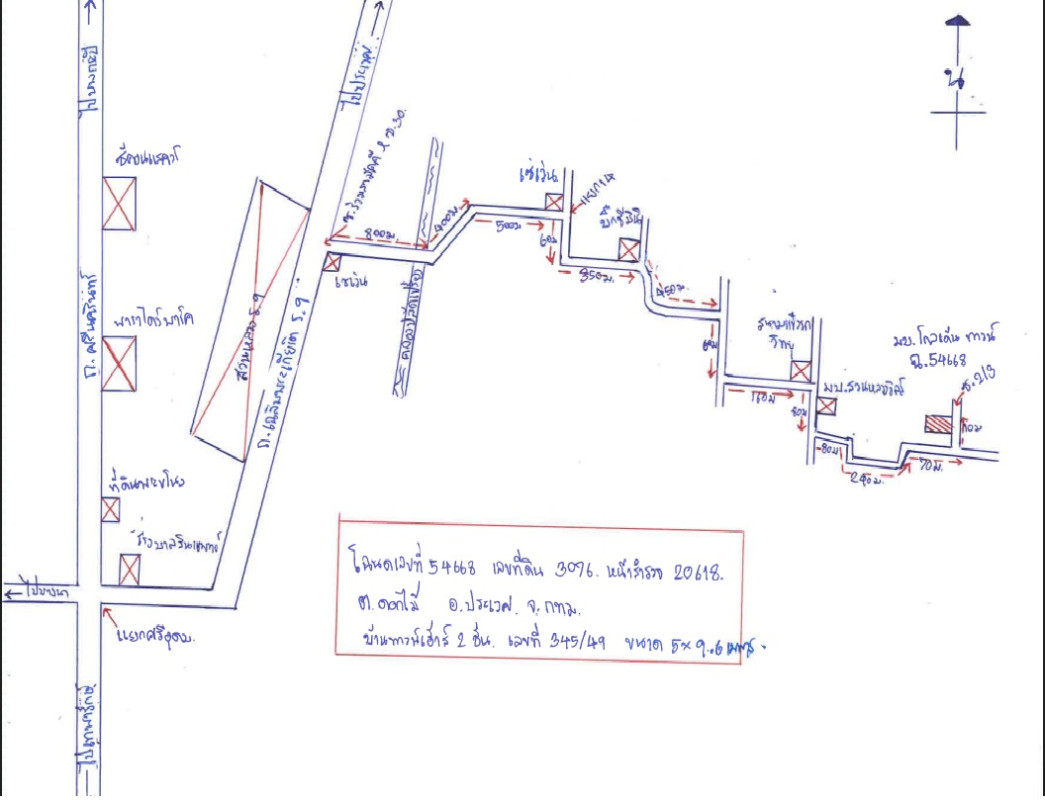 ไปบางกะปิ
ไปประเวศ
น
ซีคอนสแควร์
ซ.ร่วมสามัคคี ร.9 ซ.30.
เซเว่น
แยกซ้าย
บิ๊กซีมินิ
800ม
400ม
500ม
60ม
350ม.
450ม.
เซเว่น
ถ.ศรีนครินทร์
พาราไดซ์พาร์ค
สวนหลวง ร.9
ถ.เฉลิมพระเกียรติ ร.9
160ม
80ม
มบ.สวนหลวงวิลล์
มบ.โกลเด้น ทาวน์
ฉ.54668
ซ.2/3
80ม
240ม.
70ม.
ที่ดินพระโขนง
ไปบางนา
แยกศรีอุดม.
ไปเทพารักษ์
โฉนดเลขที่ 54668 เลขที่ดิน 3096. หน้าสำรวจ 20618.
ต.ดอกไม้ อ.ประเวศ. จ.กทม.
บ้านทาวน์เฮ้าส์ 2 ชั้น. เลขที่ 345/49 ขนาด 5×9.6 เมตร.